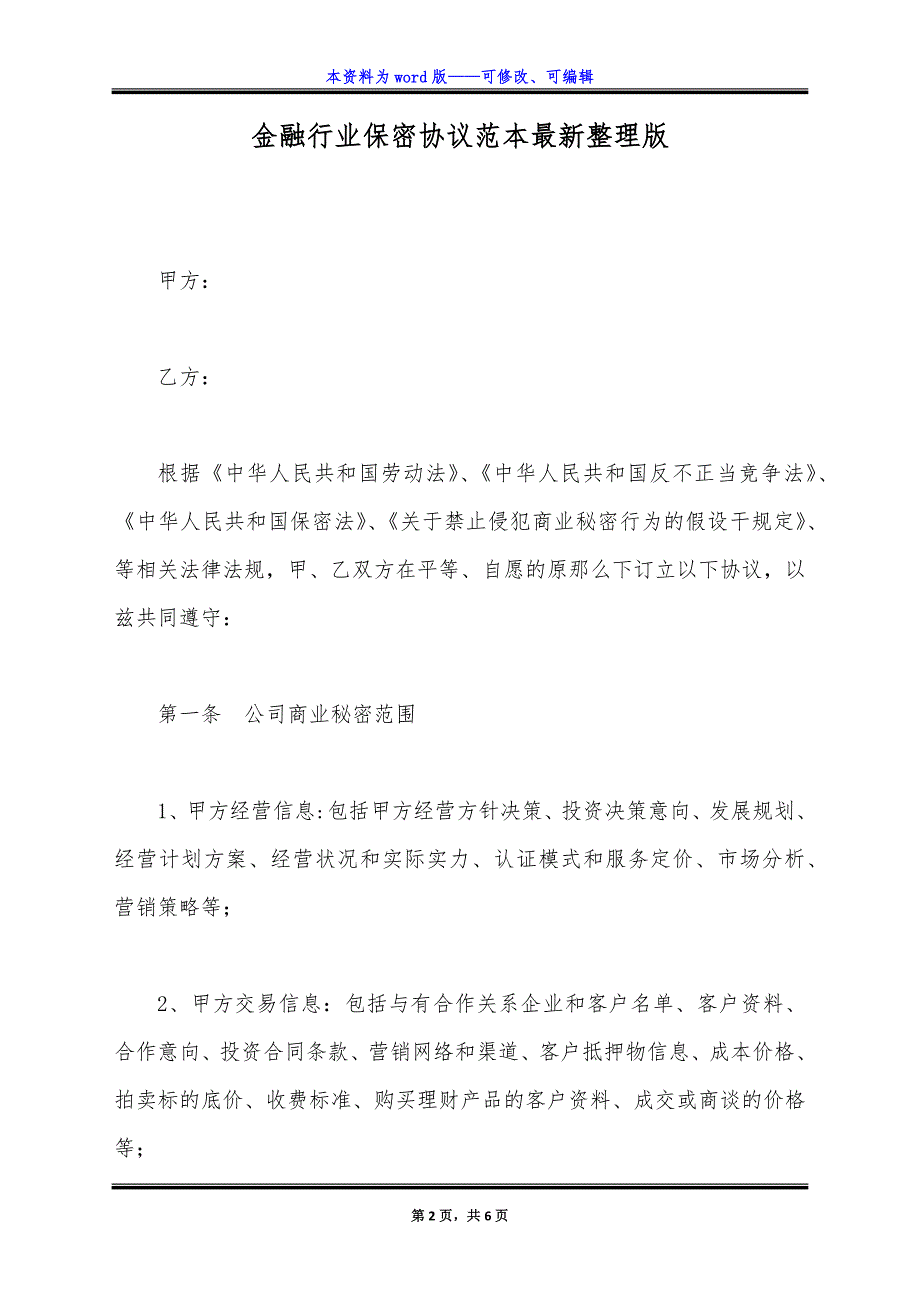 本资料为 word 版——可修改、可编辑
金融行业保密协议范本最新整理版
甲方：
乙方：
根据《中华人民共和国劳动法》、《中华人民共和国反不正当竞争法》、
《中华人民共和国保密法》、《关于禁止侵犯商业秘密行为的假设干规定》、
等相关法律法规，甲、乙双方在平等、自愿的原那么下订立以下协议，以
兹共同遵守：
第一条　公司商业秘密范围
1、甲方经营信息:包括甲方经营方针决策、投资决策意向、发展规划、
经营计划方案、经营状况和实际实力、认证模式和服务定价、市场分析、
营销策略等；
2、甲方交易信息：包括与有合作关系企业和客户名单、客户资料、
合作意向、投资合同条款、营销网络和渠道、客户抵押物信息、成本价格、
拍卖标的底价、收费标准、购买理财产品的客户资料、成交或商谈的价格
等；
第 2 页，共 6 页